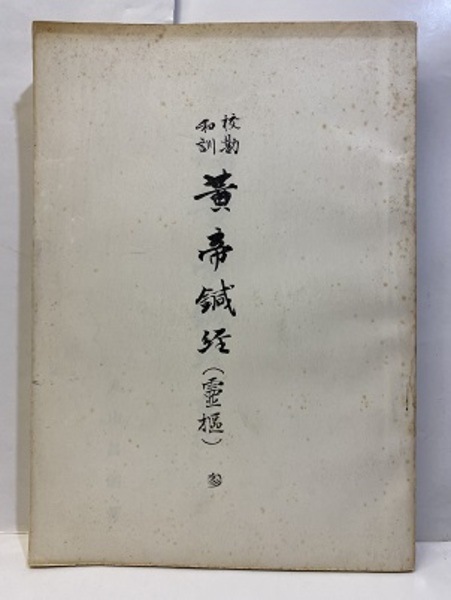 校勘
和訓
黄帝鍼経(靈樞)